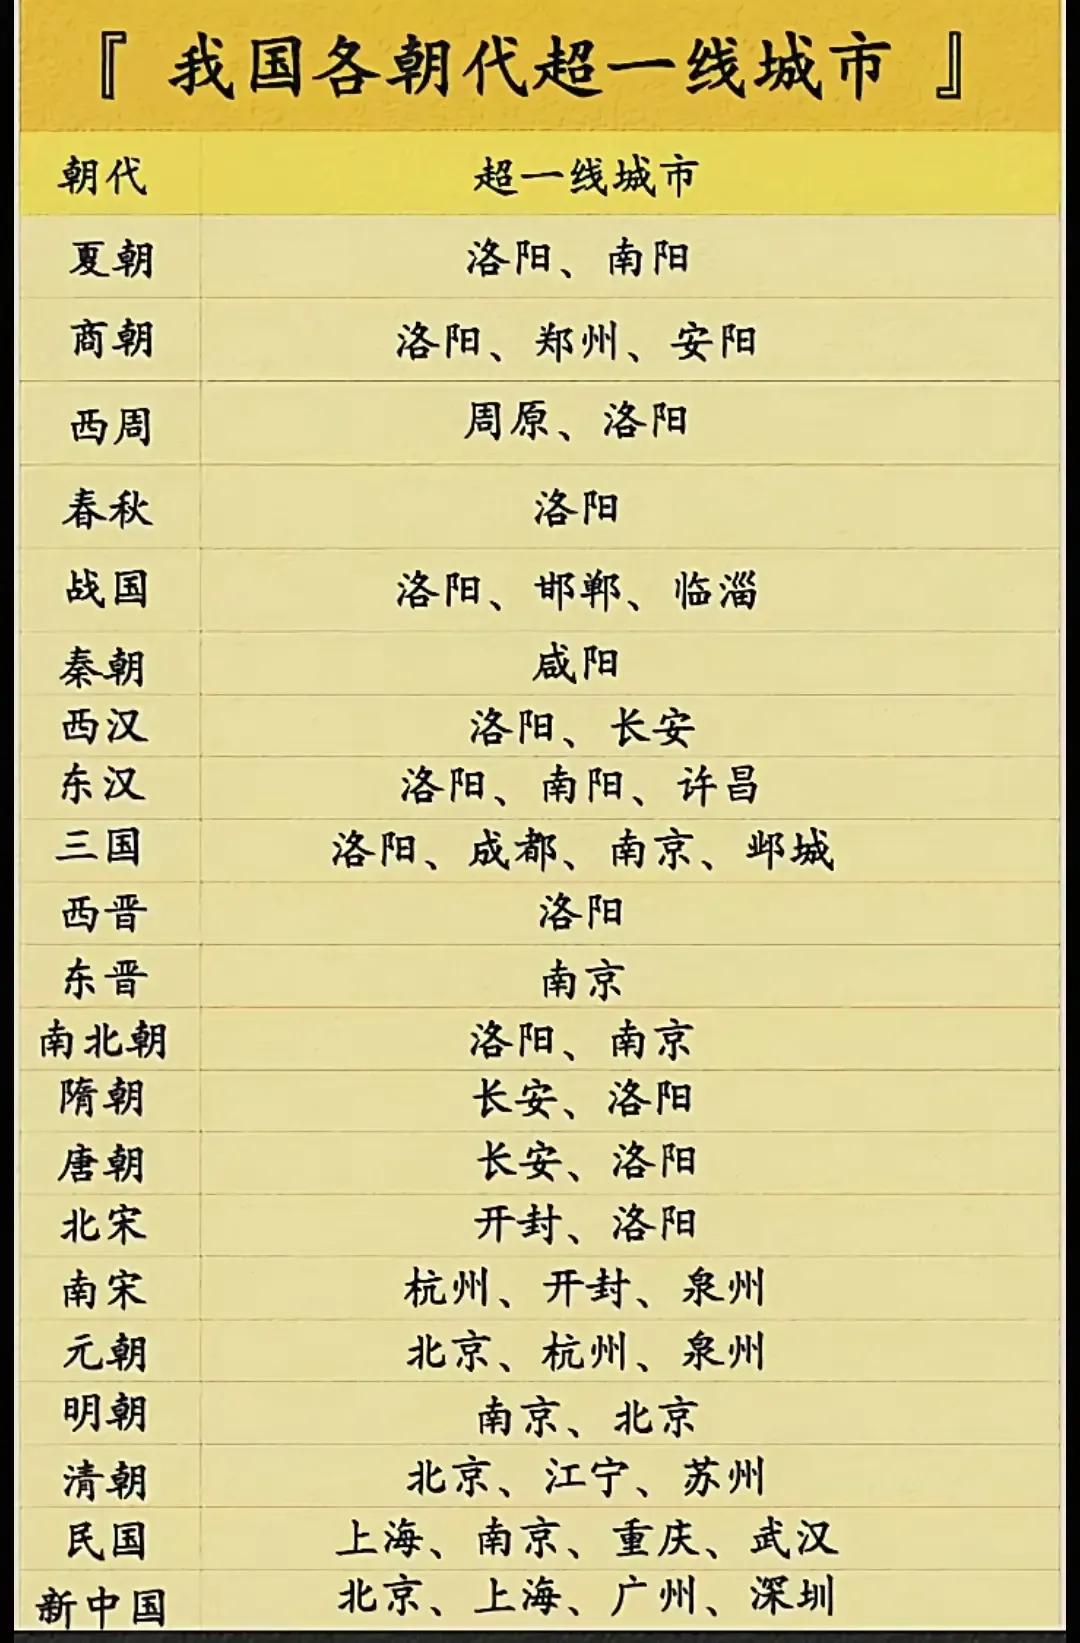 『 我国各朝代超一线城市 』
朝代 超一线城市
夏朝 洛阳、南阳
商朝 洛阳、郑州、安阳
西周 周原、洛阳
春秋 洛阳
战国 洛阳、邯郸、临淄
秦朝 咸阳
西汉 洛阳、长安
东汉 洛阳、南阳、许昌
三国 洛阳、成都、南京、邺城
西晋 洛阳
东晋 南京
南北朝 洛阳、南京
隋朝 长安、洛阳
唐朝 长安、洛阳
北宋 开封、洛阳
南宋 杭州、开封、泉州
元朝 北京、杭州、泉州
明朝 南京、北京
清朝 北京、江宁、苏州
民国 上海、南京、重庆、武汉
新中国 北京、上海、广州、深圳